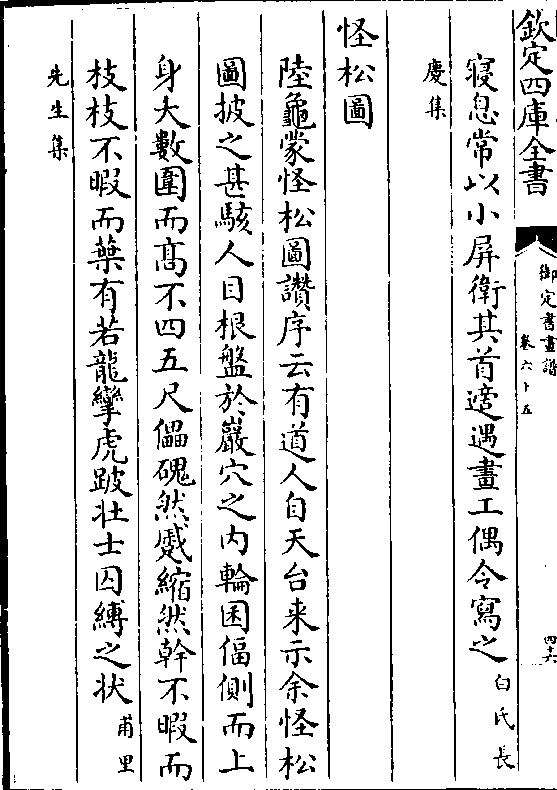 欽定四庫全書
御定書畫譜
卷六十五
四十六
寝息常以小屏衛其首遼遇畫工偶令寫之白氏長
慶集
怪松圖
陸龜蒙怪松圖讚序云有道人自天台来示余怪松
圖披之甚駭人目根盤於巖穴之内輪囷偪側而上
身大數圍而髙不四五尺儡磈然蹙縮然幹不暇而
枝枝不暇而葉有若龍攣虎跛壮士囚縛之状甫里
先生集